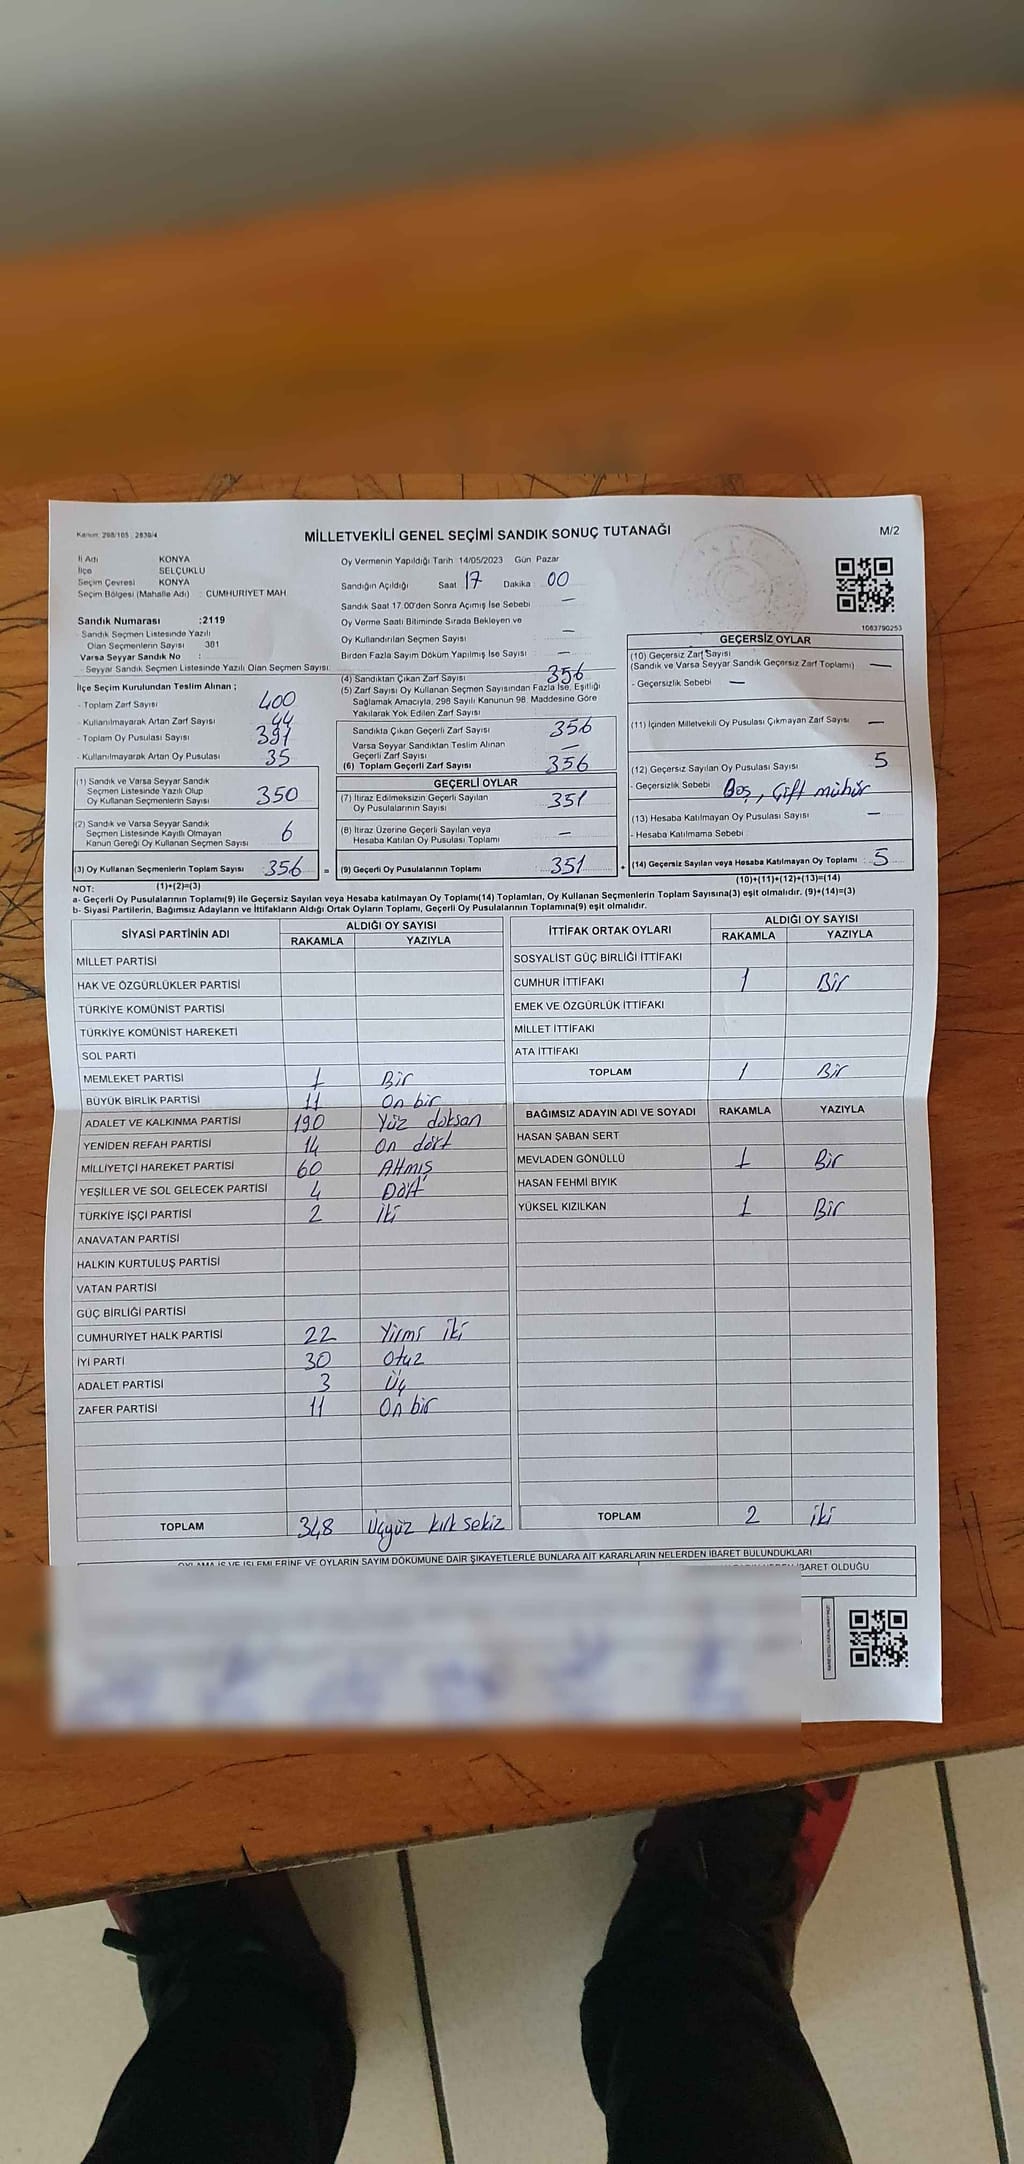 Kanun: 298/105 ; 2839/4
MİLLETVEKİLİ GENEL SEÇİMİ SANDIK SONUÇ TUTANAĞI
M/2
İl Adı KONYA
İlçe SELÇUKLU
Seçim Çevresi KONYA
Seçim Bölgesi (Mahalle Adı) : CUMHURIYET MAH
Sandık Numarası :2119
- Sandık Seçmen Listesinde Yazılı
Olan Seçmenlerin Sayısı 381
Varsa Seyyar Sandık No :
- Seyyar Sandık Seçmen Listesinde Yazılı Olan Seçmen Sayısı:
Oy Vermenin Yapıldığı Tarih 14/05/2023 Gün Pazar
Sandığın Açıldığı Saat 17 Dakika 00
Sandık Saat 17.00'den Sonra Açımış İse Sebebi —
Oy Verme Saati Bitiminde Sırada Bekleyen ve
Oy Kullandırılan Seçmen Sayısı —
Birden Fazla Sayım Döküm Yapılmış İse Sayısı —
1083790253
İlçe Seçim Kurulundan Teslim Alınan ;
- Toplam Zarf Sayısı 400
- Kullanılmayarak Artan Zarf Sayısı 44
- Toplam Oy Pusulası Sayısı 391
- Kullanılmayarak Artan Oy Pusulası 35
(1) Sandık ve Varsa Seyyar Sandık
Seçmen Listesinde Yazılı Olup
Oy Kullanan Seçmenlerin Sayısı 350
(2) Sandık ve Varsa Seyyar Sandık
Seçmen Listesinde Kayıtlı Olmayan
Kanun Gereği Oy Kullanan Seçmen Sayısı 6
(3) Oy Kullanan Seçmenlerin Toplam Sayısı 356 =
(4) Sandıktan Çıkan Zarf Sayısı 356
(5) Zarf Sayısı Oy Kullanan Seçmen Sayısından Fazla İse, Eşitliği
Sağlamak Amacıyla, 298 Sayılı Kanunun 98. Maddesine Göre
Yakılarak Yok Edilen Zarf Sayısı
Sandıkta Çıkan Geçerli Zarf Sayısı 356
Varsa Seyyar Sandıktan Teslim Alınan
Geçerli Zarf Sayısı —
(6) Toplam Geçerli Zarf Sayısı 356
GEÇERLİ OYLAR
(7) İtiraz Edilmeksizin Geçerli Sayılan
Oy Pusulalarının Sayısı 351
(8) İtiraz Üzerine Geçerli Sayılan veya
Hesaba Katılan Oy Pusulası Toplamı —
(9) Geçerli Oy Pusulalarının Toplamı 351 +
GEÇERSİZ OYLAR
(10) Geçersiz Zarf Sayısı
(Sandık ve Varsa Seyyar Sandık Geçersiz Zarf Toplamı) —
- Geçersizlik Sebebi —
(11) İçinden Milletvekili Oy Pusulası Çıkmayan Zarf Sayısı —
(12) Geçersiz Sayılan Oy Pusulası Sayısı 5
- Geçersizlik Sebebi Boş, Çift mühür
(13) Hesaba Katılmayan Oy Pusulası Sayısı —
- Hesaba Katılmama Sebebi
(14) Geçersiz Sayılan veya Hesaba Katılmayan Oy Toplamı 5
(1)+(2)=(3)
(10)+(11)+(12)+(13)=(14)
NOT:
a- Geçerli Oy Pusulalarının Toplamı(9) ile Geçersiz Sayılan veya Hesaba katılmayan Oy Toplam(14) Toplamları, Oy Kullanan Seçmenlerin Toplam Sayısına(3) eşit olmalıdır. (9)+(14)=(3)
b- Siyasi Partilerin, Bağımsız Adayların ve İttifakların Aldığı Ortak Oyların Toplamı, Geçerli Oy Pusulalarının Toplamına(9) eşit olmalıdır.
SİYASİ PARTİNİN ADI ALDIĞI OY SAYISI
RAKAMLA YAZIYLA
MİLLET PARTİSİ
HAK VE ÖZGÜRLÜKLER PARTİSİ
TÜRKİYE KOMÜNİST PARTİSİ
TÜRKİYE KOMÜNİST HAREKETİ
SOL PARTİ
MEMLEKET PARTİSİ 1 Bir
BÜYÜK BİRLİK PARTİSİ 11 On bir
ADALET VE KALKINMA PARTİSİ 190 Yüz doksan
YENİDEN REFAH PARTİSİ 14 On dört
MİLLİYETÇİ HAREKET PARTİSİ 60 Altmış
YEŞİLLER VE SOL GELECEK PARTİSİ 4 Dört
TÜRKİYE İŞÇİ PARTİSİ 2 İki
ANAVATAN PARTİSİ
HALKIN KURTULUŞ PARTİSİ
VATAN PARTİSİ
GÜÇ BİRLİĞİ PARTİSİ
CUMHURİYET HALK PARTİSİ 22 Yirmi iki
İYİ PARTİ 30 Otuz
ADALET PARTİSİ 3 Üç
ZAFER PARTİSİ 11 On bir
TOPLAM 348 Üçyüz kırk sekiz
İTTİFAK ORTAK OYLARI ALDIĞI OY SAYISI
RAKAMLA YAZIYLA
SOSYALİST GÜÇ BİRLİĞİ İTTİFAKI
CUMHUR İTTİFAKI 1 Bir
EMEK VE ÖZGÜRLÜK İTTİFAKI
MİLLET İTTİFAKI
ATA İTTİFAKI
TOPLAM 1 Bir
BAĞIMSIZ ADAYIN ADI VE SOYADI RAKAMLA YAZIYLA
HASAN ŞABAN SERT
MEVLADEN GÖNÜLLÜ 1 Bir
HASAN FEHMİ BIYIK
YÜKSEL KIZILKAN 1 Bir
TOPLAM 2 iki
OYLAMA İŞ VE İŞLEMLERİNE VE OYLARIN SAYIM DÖKÜMÜNE DAİR ŞİKAYETLERLE BUNLARA AİT KARARLARIN NELERDEN İBARET BULUNDUKLARI
İBARET OLDUĞU